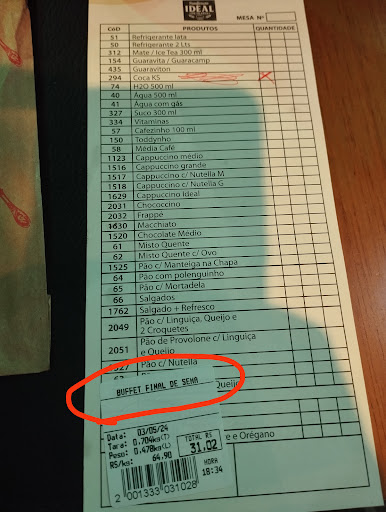 IDEAL
MESA Nº
CóD PRODUTOS QUANTIDADE
51 Refrigerante lata
50 Refrigerante 2 Lts
312 Mate / Ice Tea 300 ml
154 Guaravita / Guaracamp
435 Guaraviton
294 Coca KS X
74 H2O 500 ml
40 Água 500 ml
41 Água com gás
327 Suco 300 ml
334 Vitaminas
57 Cafezinho 100 ml
150 Toddynho
58 Média Café
1123 Cappuccino médio
1516 Cappuccino grande
1517 Cappuccino c/ Nutella M
1518 Cappuccino c/ Nutella G
1629 Cappuccino Ideal
2031 Chococcino
2032 Frappé
1630 Macchiato
1520 Chocolate Médio
61 Misto Quente
62 Misto Quente c/ Ovo
1525 Pão c/ Manteiga na Chapa
64 Pão com polenguinho
65 Pão c/ Mortadela
66 Salgados
1762 Salgado + Refresco
2049 Pão c/ Linguiça, Queijo e
2 Croquetes
2051 Pão de Provolone c/ Linguiça
e Queijo
Pão c/ Nutella
Queijo
BUFFET FINAL DE SEMA
Data: 03/05/24
Tara: 0.704kg(T)
Peso: 0.478kg(L)
R$/kg: 64.90
TOTAL R$
31.02
HORA
18:34
2 001333 031028
e e Orégano